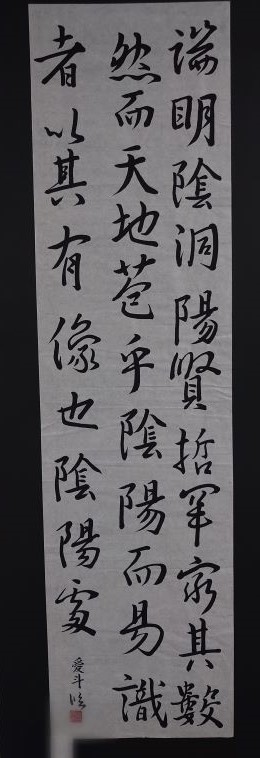 端明陰洞陽賢哲罕窮其數
然而天地苞乎陰陽而易識
者以其有像也陰陽處
愛斗臨